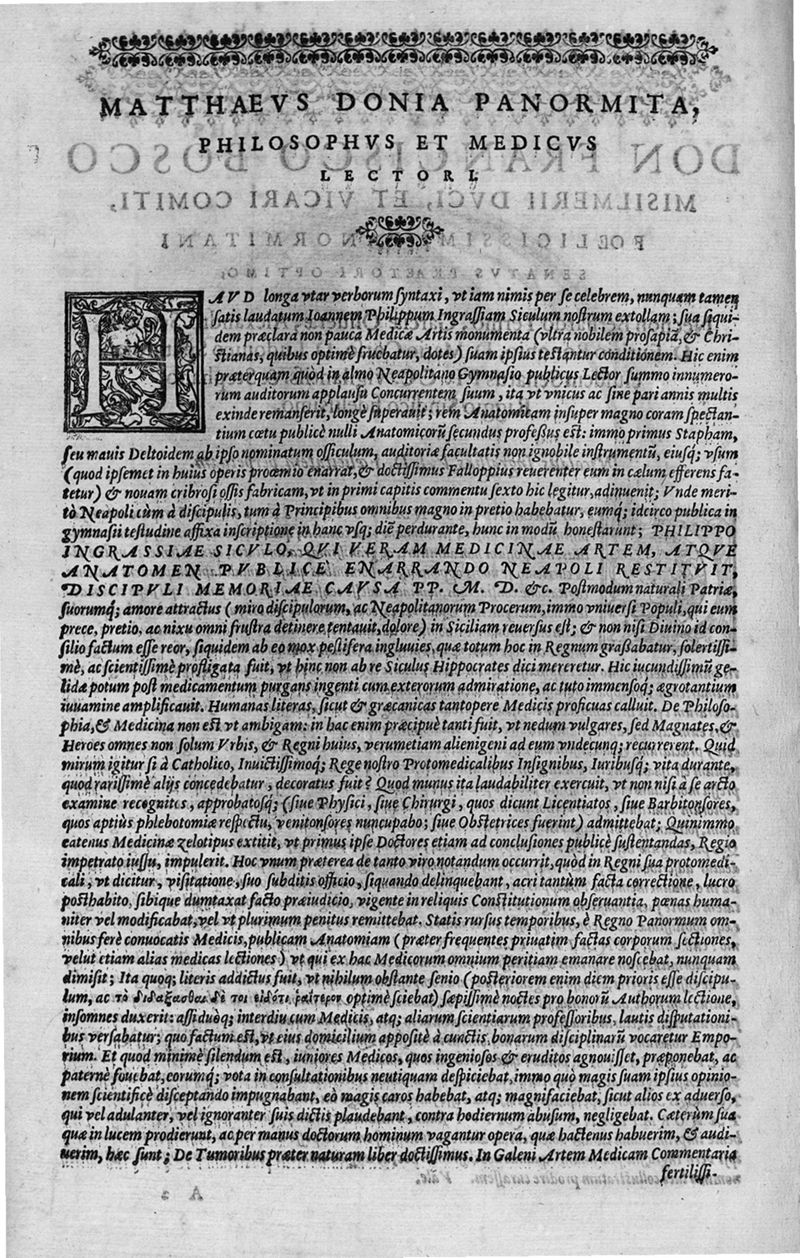 MATTHAEVS DONIA PANORMITA,
PHILOSOPHVS ET MEDICVS
LECTORI.
HAVD longa vtar verborum syntaxi, vt iam nimis per se celebrem, nunquam tamen
satis laudatum Ioannem Philippum Ingrassiam Siculum nostrum extollam: sua siqui-
dem præclara non pauca Medicæ Artis monumenta (vltra nobilem prosapiã, & Chri-
stianas, quibus optimè fruebatur, dotes) suam ipsius testantur conditionem. Hic enim
præterquam quòd in almo Neapolitano Gymnasio publicus Lector summo innumero-
rum auditorum applausu Concurrentem suum, ita vt vnicus ac sine pari annis multis
exinde remanserit, longè superauit; rem Anatomitam insuper magno coram spectan-
tium cœtu publicè nulli Anatomicorũ secundus professus est: immo primus Stapham,
seu mauis Deltoidem ab ipso nominatum ossiculum, auditoriæ facultatis non ignobile instrumentũ, eiusq; vsum
(quod ipsemet in huius operis proœmio enarrat, & doctissimus Falloppius reuerenter eum in cælum efferens fa-
tetur) & nouam cribrosi ossis fabricam, vt in primi capitis commentu sexto hic legitur, adinuenit; Vnde meri-
tò Neapoli cùm à discipulis, tum à Principibus omnibus magno in pretio habebatur, eumq; idcirco publica in
gymnasii testudine affixa inscriptione in hanc vsq; diẽ perdurante, hunc in modũ honestarunt; PHILIPPO
INGRASSIAE SICVLO, QVI VERAM MEDICINAE ARTEM, ATQVE
ANATOMEN PVBLICE ENARRANDO NEAPOLI RESTITVIT,
DISCIPVLI MEMORIAE CAVSA PP. M. D. &c. Postmodum naturali Patriæ,
suorumq; amore attractus (miro discipulorum, ac Neapolitanorum Procerum, immo vniuersi Populi, qui eum
prece, pretio, ac nixu omni frustra detinere tentauit, dolore) in Siciliam reuersus est; & non nisi Diuino id con-
silio factum esse reor, siquidem ab eo mox pestifera ingluuies, quæ totum hoc in Regnum grassabatur, solertissi-
mè, ac scientissimè profligata fuit, vt hinc non ab re Siculus Hippocrates dici mereretur. Hic iucundissimũ ge-
lidæ potum post medicamentum purgans ingenti cum exterorum admiratione, ac tuto immensoq; ægrotantium
iuuamine amplificauit. Humanas literas, sicut & græcanicas tantopere Medicis proficuas calluit. De Philoso-
phia, & Medicina non est vt ambigam: in hac enim præcipuè tanti fuit, vt nedum vulgares, sed Magnates, &
Heroes omnes non solum Vrbis, & Regni huius, verumetiam alienigeni ad eum vndecunq; recurrerent. Quid
mirum igitur si à Catholico, Inuictissimoq; Rege nostro Protomedicalibus Insignibus, Iuribusq; vita durante,
quod rarissimè alijs concedebatur, decoratus fuit? Quod munus ita laudabiliter exercuit, vt non nisi à se arcto
examine recognitos, approbatosq; (siue Physici, siue Chirurgi, quos dicunt Licentiatos, siue Barbitonsores,
quos aptiùs phlebotomiæ respectu, venitonsores nuncupabo; siue Obstetrices fuerint) admittebat; Quinimmo
eatenus Medicinæ zelotipus extitit, vt primus ipse Doctores etiam ad conclusiones publicè sustentandas, Regio
impetrato iussu, impulerit. Hoc vnum præterea de tanto viro notandum occurrit, quòd in Regni sua protomedi-
cali, vt dicitur, visitatione, suo subditis officio, siquando delinquebant, acri tantùm facta correctione, lucro
posthabito, sibique dumtaxat facto præiudicio, vigente in reliquis Constitutionum obseruantia, pœnas huma-
niter vel modificabat, vel vt plurimum penitus remittebat. Statis rursus temporibus, è Regno Panormum om-
nibus ferè conuocatis Medicis, publicam Anatomiam (præter frequentes priuatim factas corporum sectiones,
velut etiam alias medicas lectiones) vt qui ex hac Medicorum omnium peritiam emanare noscebat, nunquam
dimisit; Ita quoq; literis addictus fuit, vt nihilum obstante senio (posteriorem enim diem prioris esse discipu-
lum, ac optimè sciebat) sæpissimè noctes pro bonorũ Authorum lectione,
insomnes duxerit: assiduòq; interdiu cum Medicis, atq; aliarum scientiarum professoribus, lautis disputationi-
bus versabatur; quo factum est, vt eius domicilium appositè à cunctis, bonarum disciplinarũ vocaretur Empo-
rium. Et quod minimè silendum est, iuniores Medicos, quos ingeniosos & eruditos agnouisset, præponebat, ac
paternè fouebat, eorumq; vota in consultationibus neutiquam despiciebat, immo quò magis suam ipsius opinio-
nem scientificè disceptando impugnabant, eò magis caros habebat, atq; magnifaciebat, sicut alios ex aduerso,
qui vel adulanter, vel ignoranter suis dictis plaudebant, contra hodiernum abusum, negligebat. Cæterùm sua
quæ in lucem prodierunt, ac per manus doctorum hominum vagantur opera, quæ hactenus habuerim, & audi-
uerim, hæc sunt; De Tumoribus præter naturam liber doctissimus. In Galeni Artem Medicam Commentaria
fertilissi-